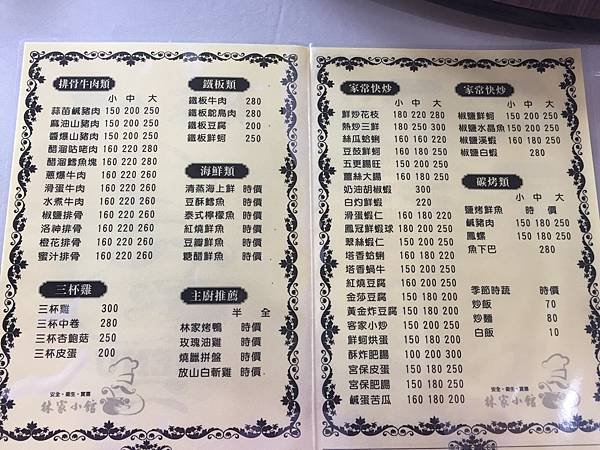 排骨牛肉類
小 中 大
蒜苗鹹豬肉 150 200 250
麻油山豬肉 150 200 250
醬爆山豬肉 150 200 250
醋溜咕咾肉 160 220 260
醋溜鱈魚塊 160 220 260
蔥爆牛肉 160 220 260
滑蛋牛肉 160 220 260
水煮牛肉 160 220 260
椒鹽排骨 160 220 260
洛神排骨 160 220 260
橙花排骨 160 220 260
蜜汁排骨 160 220 260
三杯雞
三杯雞 300
三杯中卷 280
三杯杏鮑菇 250
三杯皮蛋 200
安全・衛生・實惠
林家小館
鐵板類
鐵板牛肉 280
鐵板鴕鳥肉 280
鐵板豆腐 200
鐵板鮮蚵 250
海鮮類
清蒸海上鮮 時價
豆酥鱈魚 時價
泰式檸檬魚 時價
紅燒鮮魚 時價
豆瓣鮮魚 時價
糖醋鮮魚 時價
主廚推薦
半 全
林家烤鴨 時價
玫瑰油雞 時價
燒臘拼盤 時價
放山白斬雞 時價
家常快炒
小 中 大
鮮炒花枝 180 220 280
熱炒三鮮 180 250 300
絲瓜蛤蜊 160 180 220
豆鼓鮮蚵 160 180 250
五更腸旺 150 180 250
薑絲大腸 160 180 250
奶油胡椒蝦 300
白灼鮮蝦 220
滑蛋蝦仁 160 180 220
鳳冠鮮蝦球 180 200 250
翠絲蝦仁 150 180 250
塔香蛤蜊 160 180 220
塔香蝸牛 150 180 250
紅燒豆腐 150 180 250
金莎豆腐 150 180 200
黃金炸豆腐 150 180 200
客家小炒 150 180 250
鮮蚵烘蛋 150 180 200
酥炸肥腸 100 150 200
宮保皮蛋 150 180 250
宮保肥腸 150 180 250
鹹蛋苦瓜 160 180 200
家常快炒
小 中 大
椒鹽鮮蚵 160 180 250
椒鹽水晶魚 150 200 250
椒鹽溪蝦 160 180 220
椒鹽白蝦 280
碳烤類
小 中 大
鹽烤鮮魚 時 價
鹹豬肉 150 180 250
鳳螺 150 180 250
魚下巴 280
季節時蔬 時價
炒飯 70
炒麵 80
白飯 10
安全・衛生・實惠
林家小館